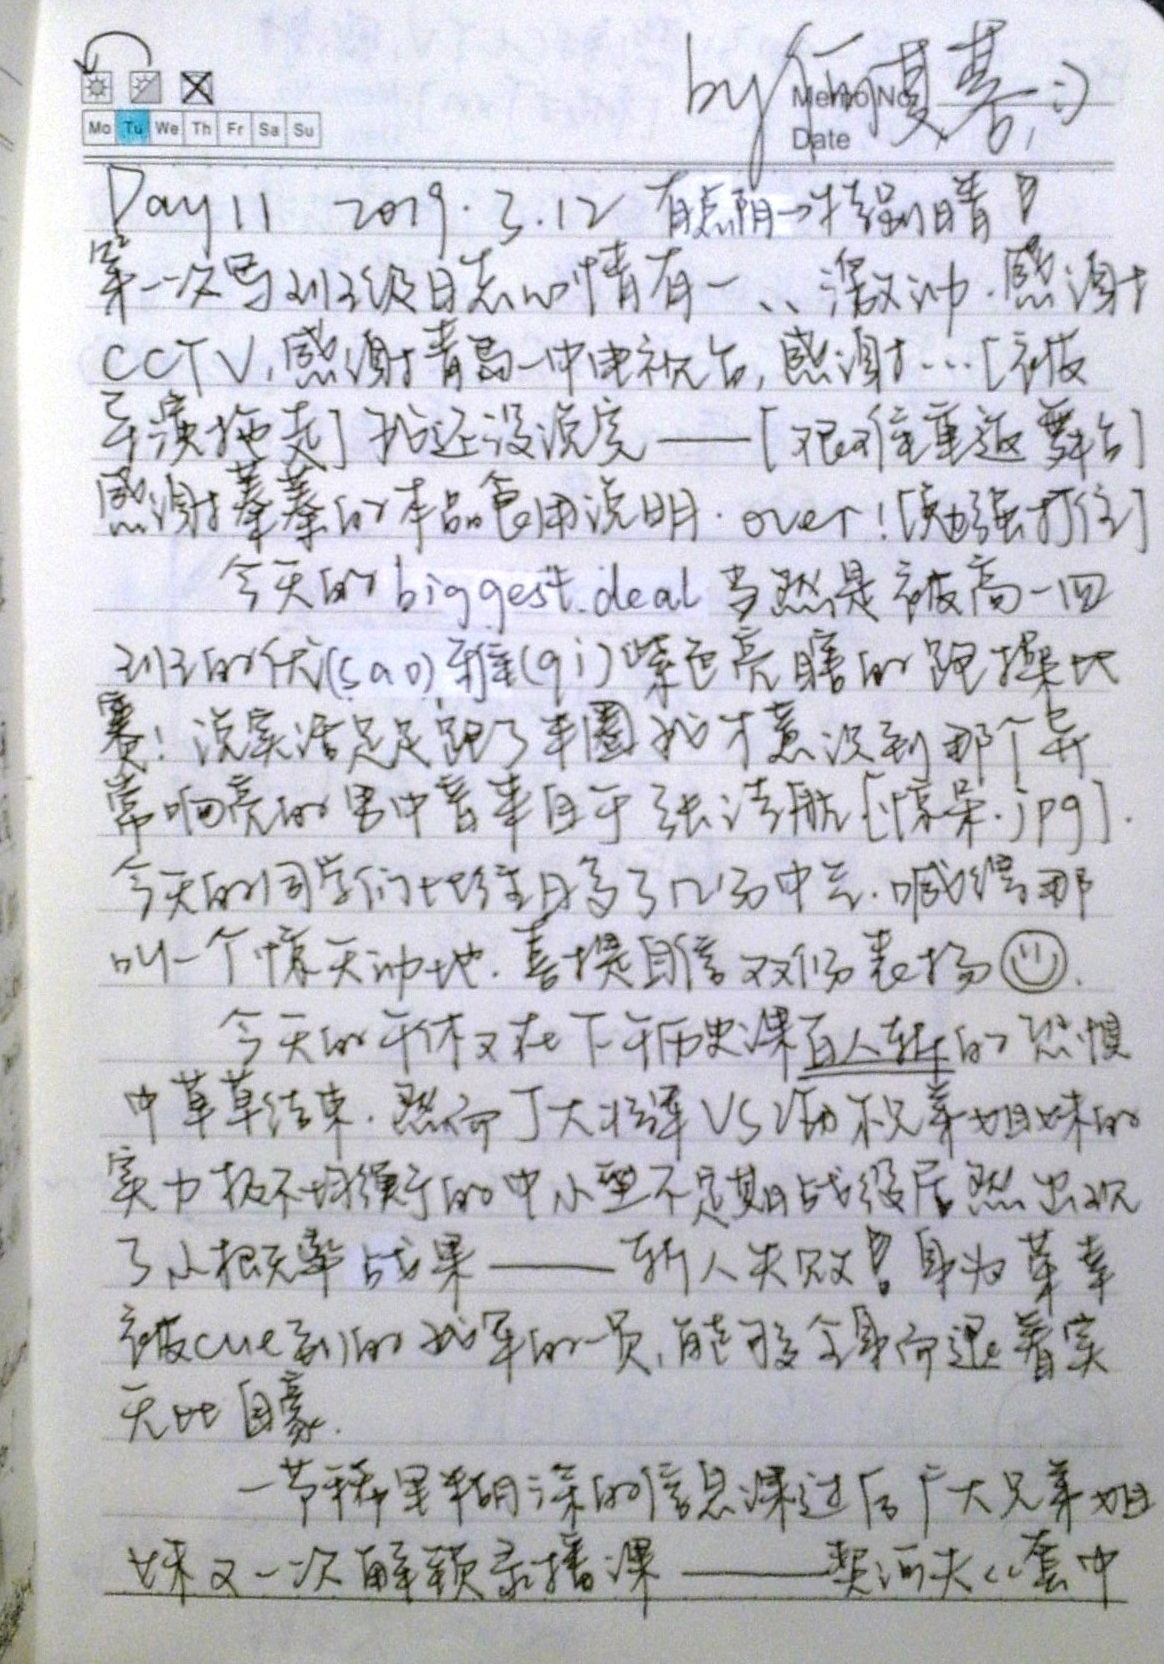 by 何夏暮 :)
Memo No.
Mo Tu We Th Fr Sa Su
Date
Day 11 2019.3.12 有点阴→特别晴!
第一次写班级日志心情有一、、激动.感谢
CCTV,感谢青岛一中电视台,感谢…[被
导演拖走]我还没说完——[艰难重返舞台]
感谢蓁蓁的本品食用说明.over![勉强打住]
今天的biggest deal当然是被高一四
班的优(sao)雅(qi)紫色亮瞎的跑操比
赛!说实话足足跑了半圈我才意识到那个异
常响亮的男中音来自于张清航[惊呆.jpg].
今天的同学们比往日多了几分中气.喊得那
叫一个惊天动地.喜提自信双份表扬
今天的午休又在下午历史课百人斩的恐惧
中草草结束.然而丁大将军VS历太兄弟姐妹的
实力极不均衡的中小型不定期战役居然出现
了小概率战果——斩人失败!身为荣幸
被cue到的我军的一员,能够全身而退着实
无比自豪.
一节稀里糊涂的信息课过后广大兄弟姐
妹又一次解锁录播课——契诃夫《套中